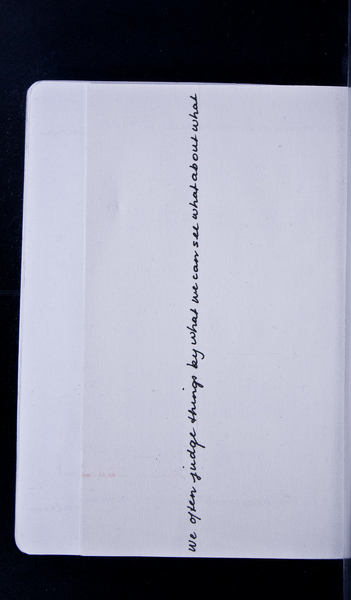 We often judge things by what we can see what about what